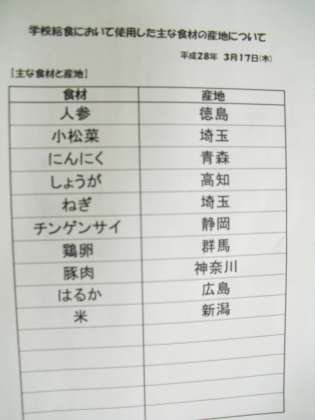 学校給食において使用した主な食材の産地について
平成28年 3月17日(木)
[主な食材と産地]
食材 産地
人参 徳島
小松菜 埼玉
にんにく 青森
しょうが 高知
ねぎ 埼玉
チンゲンサイ 静岡
鶏卵 群馬
豚肉 神奈川
はるか 広島
米 新潟